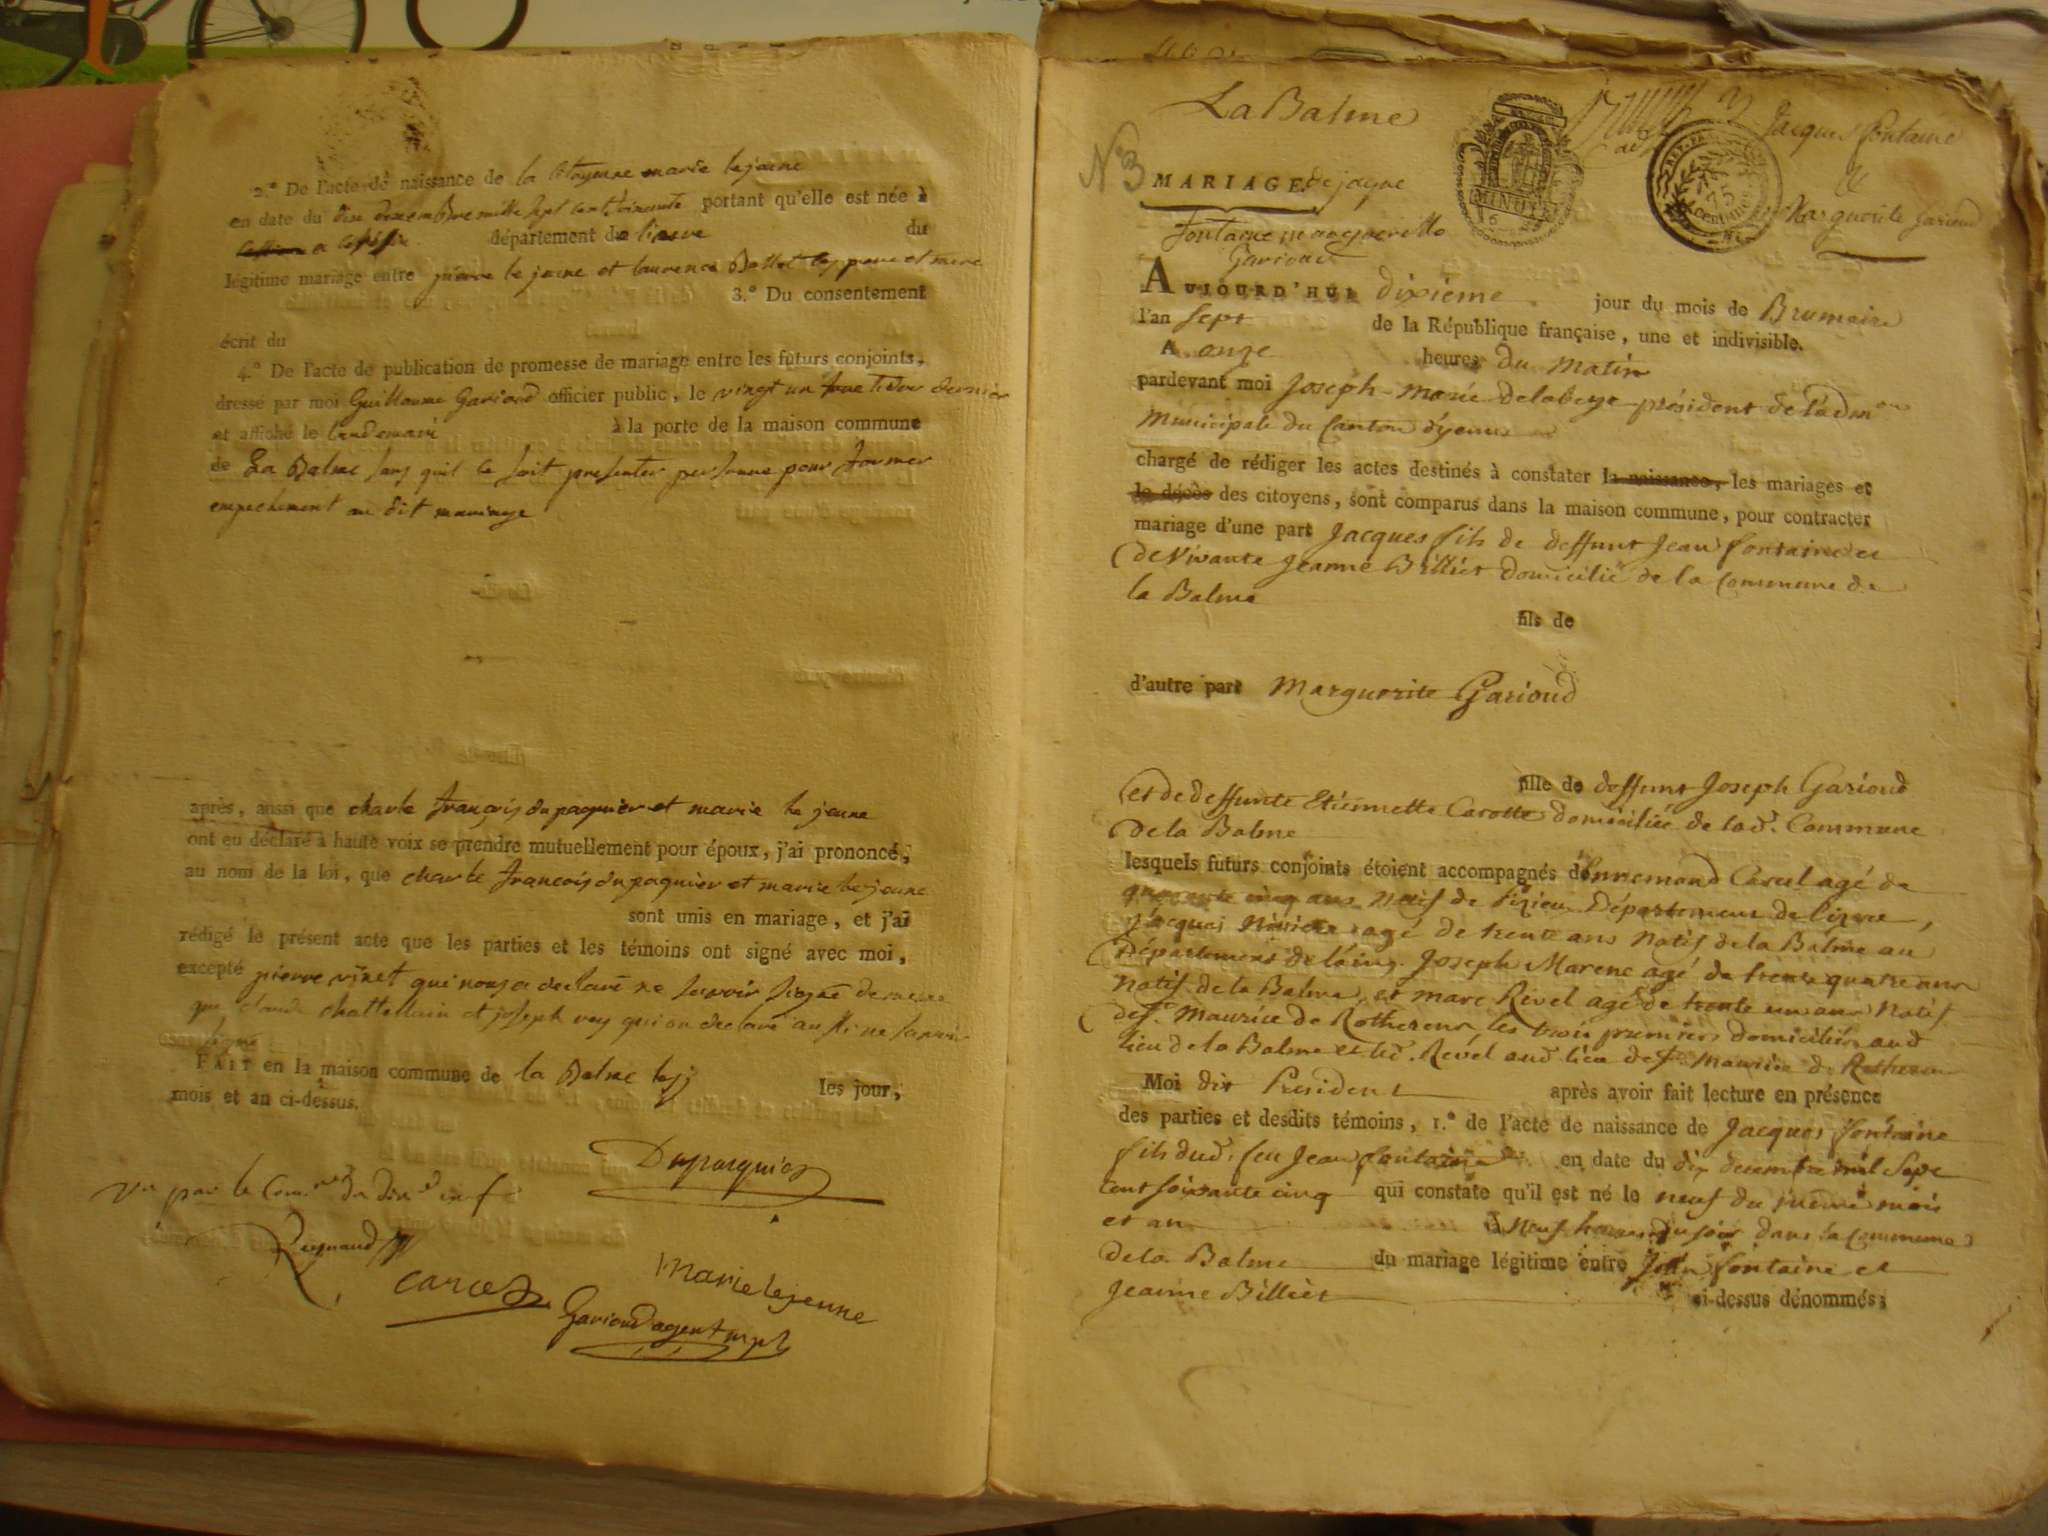 2.° De l'acte de naissance de la Citoyenne marie lejeune
en date du dix decembre mille sept cent portant qu'elle est née à
a département de lisere du
légitime mariage entre pierre le jeune et laurence pere et mere
3.° Du consentement
écrit du
4.° De l'acte de publication de promesse de mariage entre les futurs conjoints,
dressé par moi Guillaume Garioud officier public, le vingt un dernier
et affiché le lendemain à la porte de la maison commune
de La Balme sans quil ce soit presenter personne pour former
empechement au dit mariage
après, aussi que charle françois dupaquier et marie le jeune
ont eu déclaré à haute voix se prendre mutuellement pour époux, j'ai prononcé,
au nom de la loi, que charle francois dupaquier et marie lejeune
sont unis en mariage, et j'ai
rédigé le présent acte que les parties et les témoins ont signé avec moi,
excepté pierre vinet qui nous a declaré ne savoir signé de meme
que claude chattellain et joseph rey qui on declare aussi ne savoir
signé
FAIT en la maison commune de la Balme les jour,
mois et an ci-dessus.
Dupasquier
vu par le
Reynaud
carcel
Marie lejeune
Garioud agent mpl
La Balme
Jacques fontaine
N° 3
MARIAGE de jaque
&
Marguerite Garioud
fontaine margueritte
Garioud
AUJOURD'HUI dixieme jour du mois de Brumaire
l'an sept de la République française, une et indivisible.
A onze heures du Matin
pardevant moi Joseph-Marie Delabeye président de l'adm.on
Municipale du Canton d'yenne
chargé de rédiger les actes destinés à constater la naissance, les mariages et
le décès des citoyens, sont comparus dans la maison commune, pour contracter
mariage d'une part Jacques fils de deffunt Jean fontaine et
de vivante Jeanne Billiet domicilié de la Commune de
la Balme
fils de
d'autre part Marguerite Garioud
fille de deffunt Joseph Garioud
et de deffunte Etiennette Carotte domiciliée de lad. Commune
de la Balme
lesquels futurs conjoints étoient accompagnés d'Ennemond Carcel agé de
quarante cinq ans Natif de Département de l'izere,
jacques agé de trente ans Natif de la Balme au
Département de l'ain, Joseph Marene agé de trente quatre ans
Natif de la Balme, et Marc Rével agé de trente un ans Natif
de St. Maurice de Rotherens, les trois premiers domiciliés aud
lieu de la Balme et led. Revel aud lieu de St. Maurice de Rotherens
Moi dit Président après avoir fait lecture en présence
des parties et desdits témoins, 1.° de l'acte de naissance de Jacques fontaine
fils dud. feu Jean fontaine en date du dix decembre mil Sept
Cent soixante cinq qui constate qu'il est né le neuf du même mois
et an à Neuf heures du soir dans la Commune
de la Balme du mariage légitime entre Jean fontaine et
Jeanne Billiet ci-dessus dénommés;